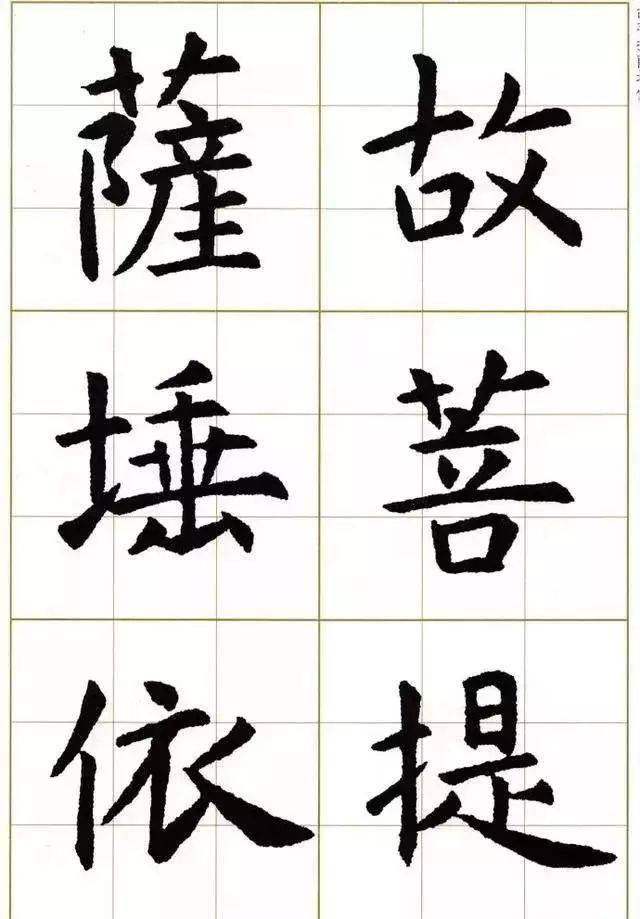 故菩提
薩埵依